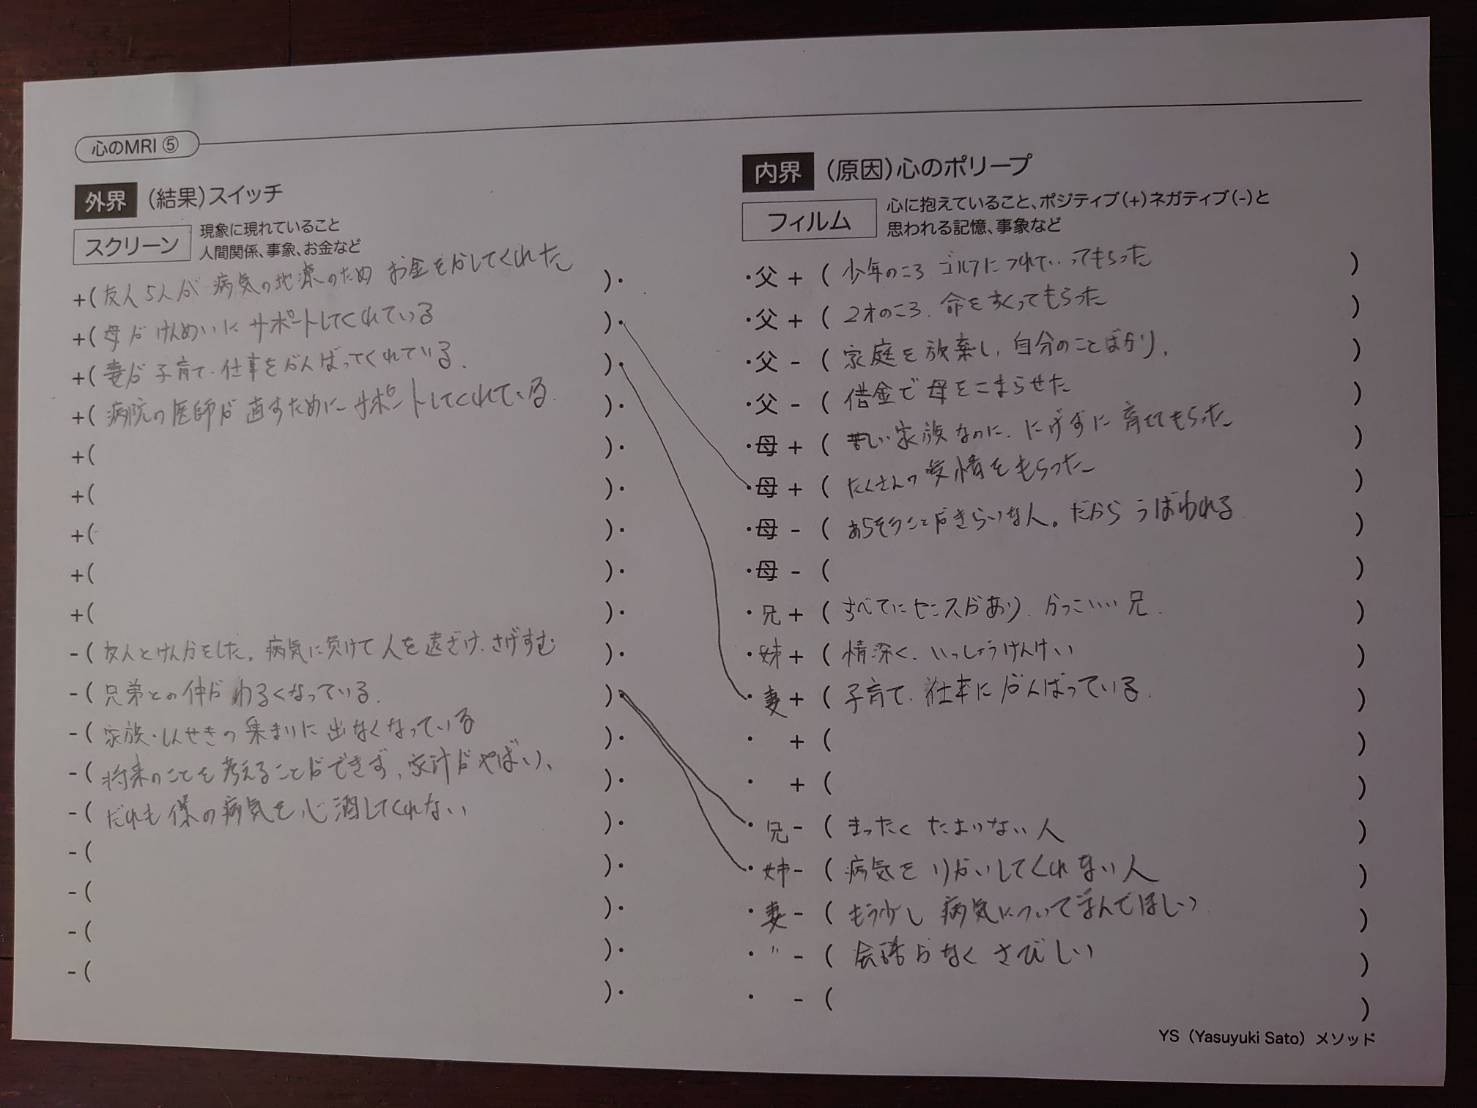 心のMRI ⑤
外界 (結果)スイッチ
スクリーン 現象に現れていること
人間関係、事象、お金など
+( 友人5人が 病気の地療のため お金をかしてくれた )・
+( 母が けんめいに サポートしてくれている )・
+( 妻が 子育て、仕事をがんばってくれている。 )・
+( 病院の医師が 直すために サポートしてくれている )・
+( )・
+( )・
+( )・
+( )・
+( )・
-( 友人とけんかをした。病気に負けて 人を遠ざけ、さげすむ )・
-( 兄弟との仲が わるくなっている。 )・
-( 家族・しんせきの 集まりに 出なくなっている )・
-( 将来のことを 考えることができず、家計がやばい、 )・
-( だれも 僕の病気を心配してくれない )・
-( )・
-( )・
-( )・
-( )・
内界 (原因)心のポリープ
フィルム 心に抱えていること、ポジティブ(+)ネガティブ(-)と
思われる記憶、事象など
・父 + ( 少年のころ ゴルフに つれていってもらった )
・父 + ( 2才のころ、命をすくってもらった )
・父 - ( 家庭を放棄し、自分のことばかり、 )
・父 - ( 借金で 母をこまらせた )
・母 + ( 家族なのに、にげずに 育ててもらった )
・母 + ( たくさんの愛情をもらった )
・母 - ( あらそうことがきらいな人。だから うばわれる )
・母 - ( )
・兄 + ( すべてにセンスがあり、かっこいい 兄。 )
・姉 + ( 情深く、いっしょうけんけい )
・妻 + ( 子育て、仕事に がんばっている。 )
・ + ( )
・ + ( )
・兄 - ( まったく たよりない 人 )
・姉 - ( 病気を りかいしてくれない人 )
・妻 - ( もう少し 病気について学んでほしい )
・〃 - ( 会話がなく さびしい )
・ - ( )
YS（Yasuyuki Sato）メソッド